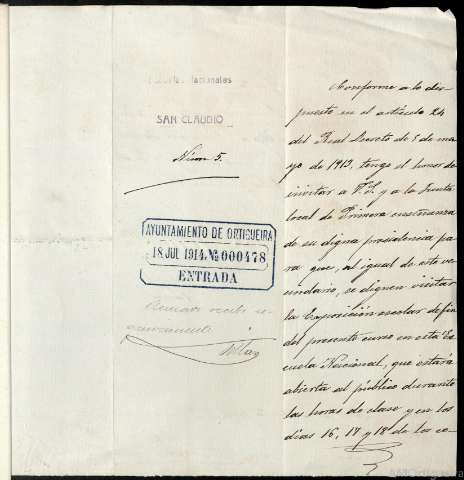 Escuelas Nacionales
SAN CLAUDIO
Núm 5.
AYUNTAMIENTO DE ORTIGUEIRA
18 JUL 1914. Nº 000478
ENTRADA
Conforme a lo dis-
puesto en el artículo 24
del Real Decreto de 5 de ma-
yo de 1913, tengo el honor de
invitar a V.S. y a la Junta
local de Primera enseñanza
de su digna presidencia pa-
ra que, al igual de este ve-
cindario, se dignen visitar
la Exposición escolar de fin
del presente curso en esta Es-
cuela Nacional, que estará
abierta al público durante
las horas de clase y en los
días 16, 17 y 18 de los co-
AMOrtigueira